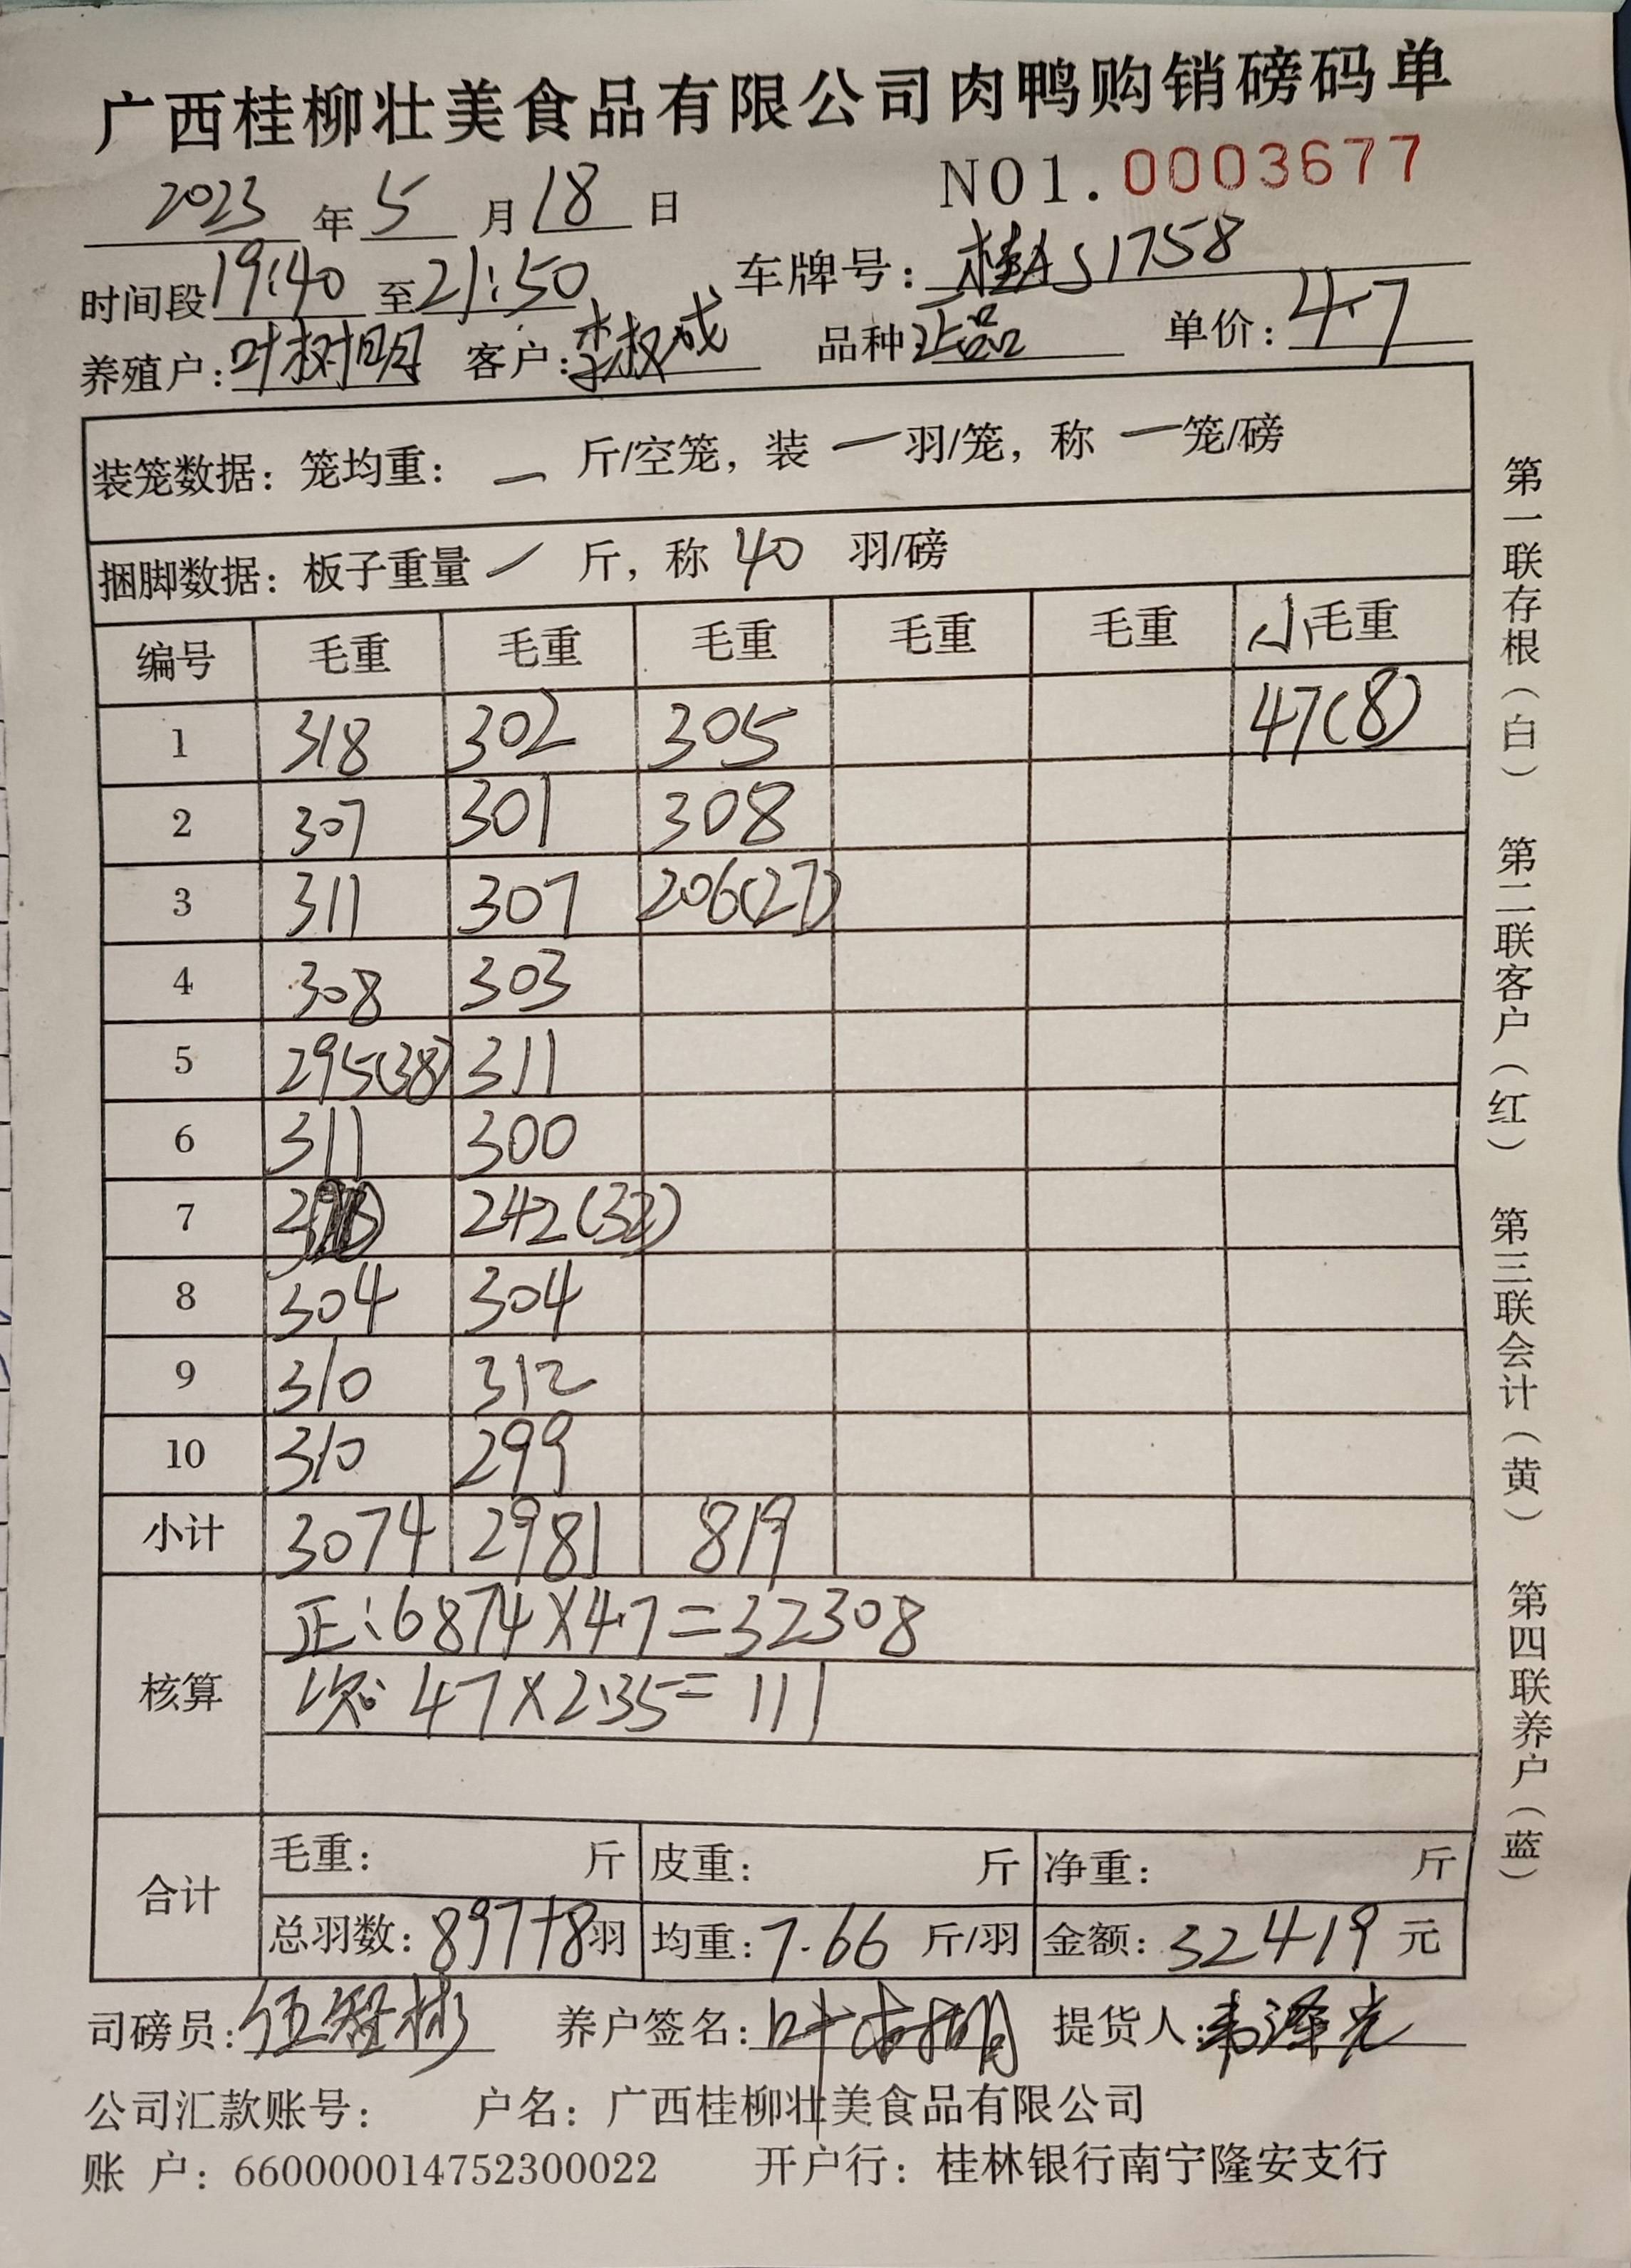 广西桂柳壮美食品有限公司肉鸭购销磅码单
NO1.0003677
2023年5月18日
时间段19:40至21:50 车牌号：桂AS1758
养殖户：叶树明 客户：李权成 品种：正品 单价：4.7
装笼数据：笼均重：一斤/空笼，装一羽/笼，称一笼/磅
捆脚数据：板子重量/斤，称40羽/磅
编号 毛重 毛重 毛重 毛重 毛重 小毛重
1 318 302 305 47(8)
2 307 301 308
3 311 307 206(27)
4 308 303
5 295(38) 311
6 311 300
7 242(32)
8 304 304
9 310 312
10 310 299
小计 3074 2981 819
核算
正：6874×4.7=32308
次：47×2.35=111
合计
毛重： 斤 皮重： 斤 净重： 斤
总羽数：897+8羽 均重：7.66斤/羽 金额：32419元
司磅员：伍智彬 养户签名：叶树明 提货人：韦泽光
公司汇款账号： 户名：广西桂柳壮美食品有限公司
账 户：660000014752300022 开户行：桂林银行南宁隆安支行
第一联存根（白） 第二联客户（红） 第三联会计（黄） 第四联养户（蓝）